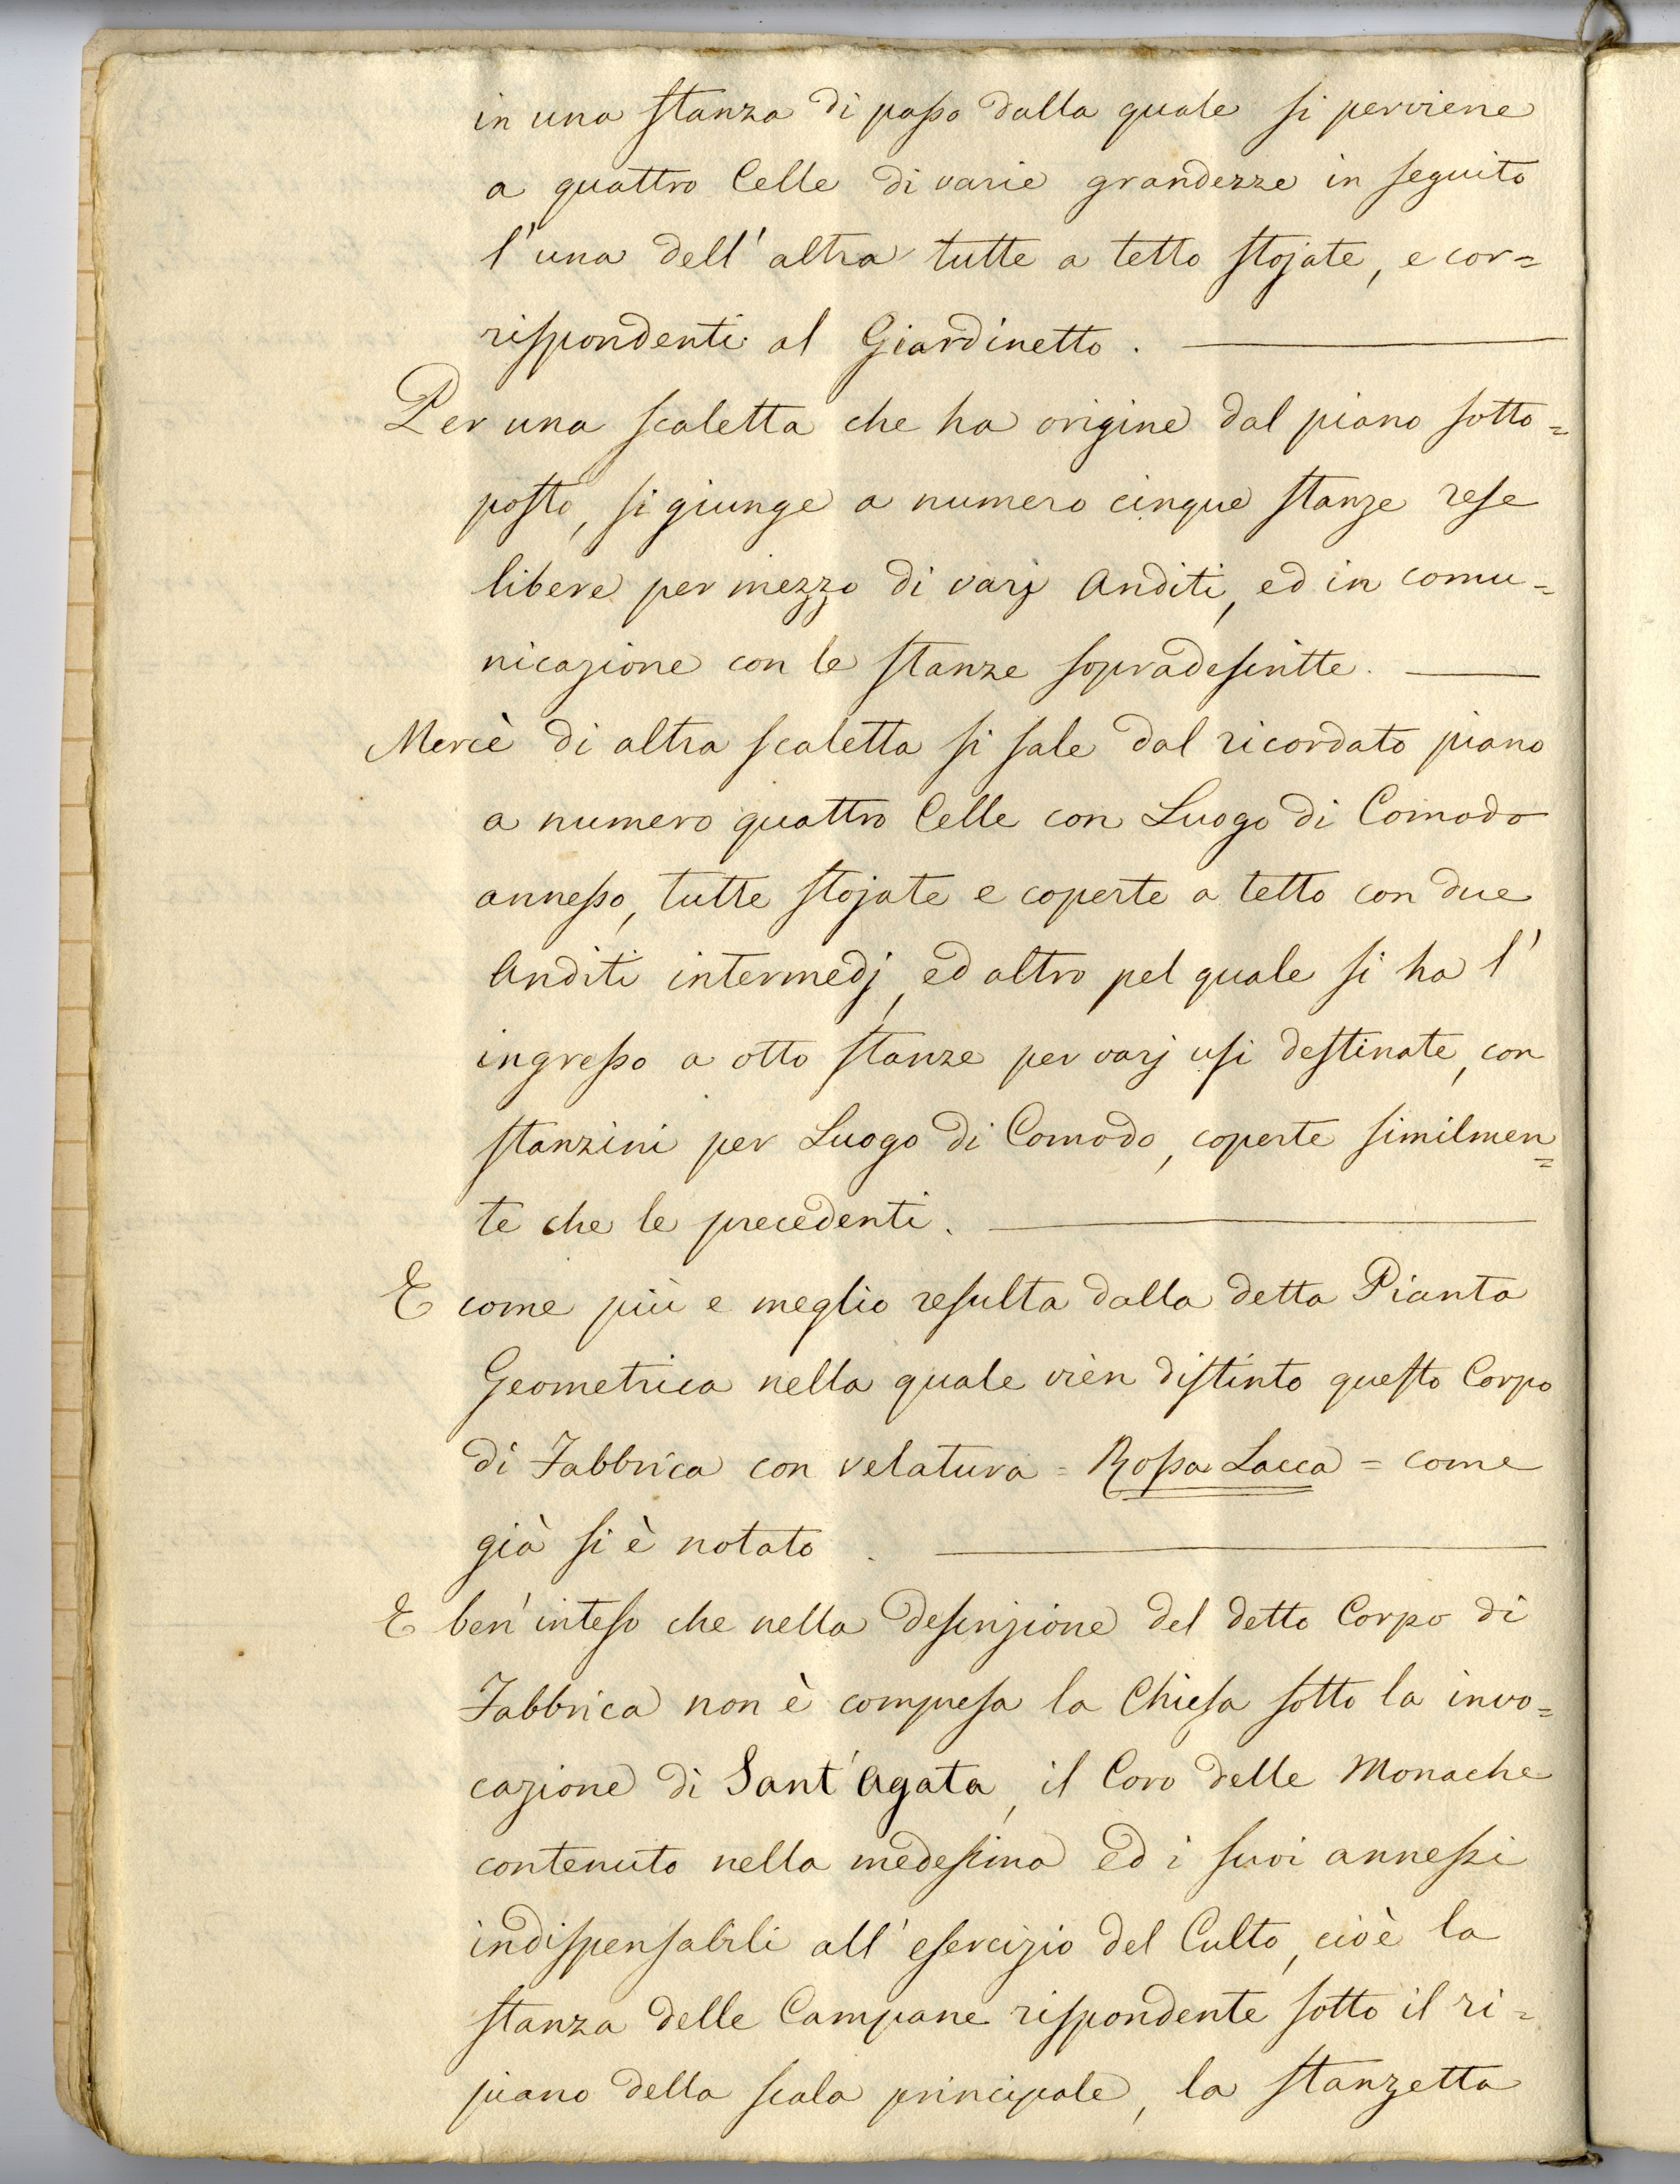 in una stanza di passo dalla quale si perviene
a quattro Celle di varie grandezze in seguito
l'una dell'altra tutte a tetto stojate, e cor=
rispondenti al Giardinetto.
Per una scaletta che ha origine dal piano sotto=
posto, si giunge a numero cinque stanze rese
libere per mezzo di varj Anditi, ed in comu=
nicazione con le stanze sopradescritte.
Mercè di altra scaletta si sale dal ricordato piano
a numero quattro Celle con Luogo di Comodo
annesso, tutte stojate e coperte a tetto con due
Anditi intermedj, ed altro pel quale si ha l'
ingresso a otto stanze per varj usi destinate, con
stanzini per Luogo di Comodo, coperte similmen=
te che le precedenti.
E come più e meglio resulta dalla detta Pianta
Geometrica nella quale vièn distinto questo Corpo
di Fabbrica con velatura = Rossa Lacca = come
già si è notato.
E ben'inteso che nella descrizione del detto Corpo di
Fabbrica non è compresa la Chiesa sotto la invo=
cazione di Sant'Agata, il Coro delle Monache
contenuto nella medesima ed i suoi annessi
indispensabili all'esercizio del Culto, cioè la
stanza delle Campane rispondente sotto il ri=
piano della scala principale, la stanzetta